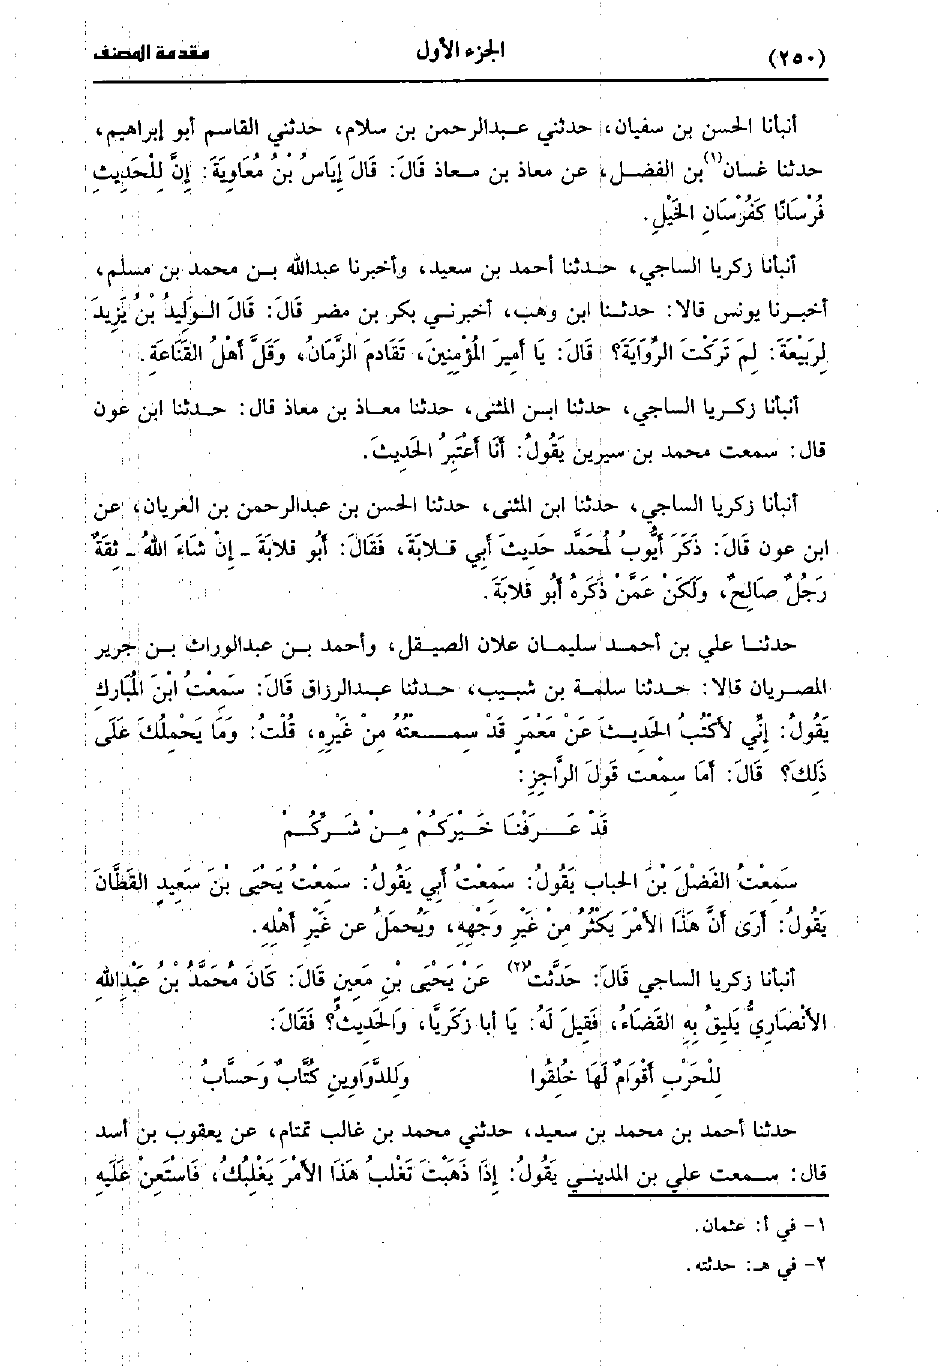 (٢٥٠) الجزء الأول مقدمة المصنف
أنبأنا الحسن بن سفيان، حدثني عبدالرحمن بن سلام، حدثني القاسم أبو إبراهيم،
حدثنا غسان(١) بن الفضل، عن معاذ بن معاذ قَالَ: قَالَ إِيَاسُ بْنُ مُعَاوِيَةَ: إِنَّ لِلْحَدِيثِ
فُرْسَانًا كَفُرْسَانِ الخَيْلِ.
أنبأنا زكريا الساجي، حدثنا أحمد بن سعيد، وأخبرنا عبدالله بن محمد بن مسلم،
أخبرنا يونس قالا: حدثنا ابن وهب، أخبرني بكر بن مضر قَالَ: قَالَ الوَلِيدُ بْنُ يَزِيدَ
لِرَبِيعَةَ: لِمَ تَرَكْتَ الرِّوَايَةَ؟ قَالَ: يَا أَمِيرَ المُؤْمِنِينَ، تَقَادمَ الزَّمَانُ، وَقَلَّ أَهْلُ القَنَاعَةِ.
أنبأنا زكريا الساجي، حدثنا ابن المثنى، حدثنا معاذ بن معاذ قال: حدثنا ابن عون
قال: سمعت محمد بن سيرين يَقُولُ: أَنَا أَعْتَبِرُ الحَدِيثَ.
أنبأنا زكريا الساجي، حدثنا ابن المثنى، حدثنا الحسن بن عبدالرحمن بن العريان، عن
ابن عون قَالَ: ذَكَرَ أَيُّوبُ لمُحَمَّد حَدِيثَ أَبِي قِلَابَةَ، فَقَالَ: أَبُو قِلابَةَ ـ إِنْ شَاءَ اللهُ ـ ثِقَةٌ
رَجُلٌ صَالِحٌ، وَلَكِنْ عَمَّنْ ذَكَرَهُ أَبُو قلابَةَ.
حدثنا علي بن أحمد سليمان علان الصيقل، وأحمد بن عبدالوراث بن جرير
المصريان قالا: حدثنا سلمة بن شبيب، حدثنا عبدالرزاق قَالَ: سَمِعْتُ ابْنَ المُبَارَكِ
يَقُولُ: إِنِّي لأَكْتُبُ الحَدِيثَ عَنْ مَعْمَرٍ قَدْ سَمِعْتُهُ مِنْ غَيْرِهِ، قُلْتُ: وَمَا يَحْمِلُكَ عَلَى
ذَلِكَ؟ قَالَ: أَمَا سمِعْت قَولَ الرَّاجِزِ:
قَدْ عَرَفْنَا خَيْرَكُمْ مِنْ شَرِّكُمْ
سَمِعْتُ الفَضْلَ بْنَ الحباب يَقُولُ: سَمِعْتُ أَبِي يَقُولُ: سَمِعْتُ يَحْيَى بْنَ سَعِيدٍ القَطَّانَ
يَقُولُ: أَرَى أَنَّ هَذَا الأَمْرَ يَكْثُرُ مِنْ غَيْرِ وَجْهِهِ، وَيُحمَلُ عن غَيْرِ أَهْلِهِ.
أنبأنا زكريا الساجي قَالَ: حَدَّثت(٢) عَنْ يَحْيَى بْنِ مَعِينٍ قَالَ: كَانَ مُحَمَّدُ بْنُ عَبْدِاللهِ
الأَنْصَارِيُّ يَلِيقُ بِهِ القَضَاءُ، فَقِيلَ لَهُ: يَا أبا زَكَرِيَّا، وَالحَدِيثُ؟ فَقَالَ:
لِلْحَرْبِ أَقْوَامٌ لَهَا خُلِقُوا وَلِلدَّوَاوِينِ كُتَّابٌ وَحسَّابُ
حدثنا أحمد بن محمد بن سعيد، حدثني محمد بن غالب تمتام، عن يعقوب بن أسد
قال: سمعت علي بن المديني يَقُولُ: إِذَا ذَهَبْتَ تَغْلِبُ هَذَا الأَمْرَ يَغْلِبُكَ، فَاسْتَعِنْ عَلَيْهِ
١- في أ: عثمان.
٢- في هـ: حدثته.